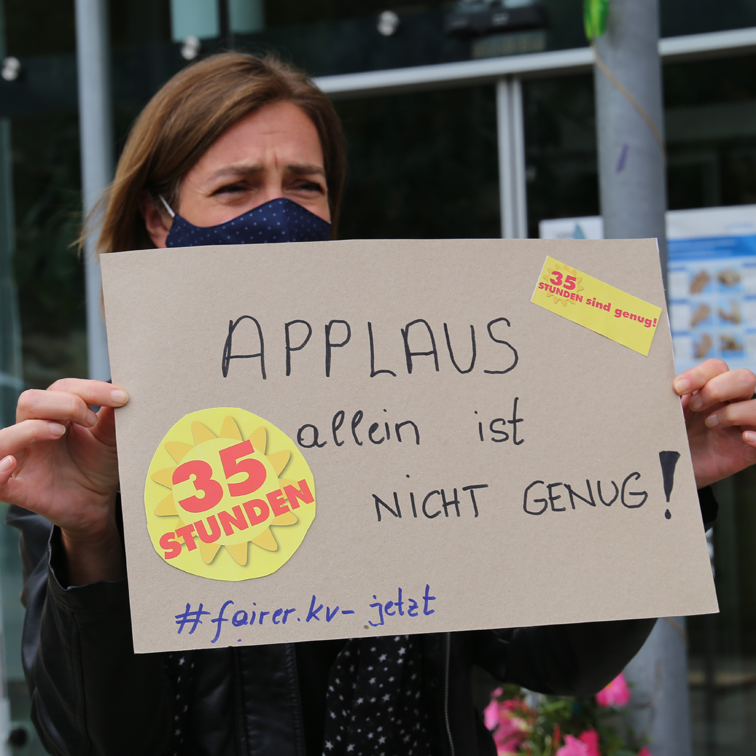 35
STUNDEN sind genug!
APPLAUS
allein ist
NICHT GENUG!
35
STUNDEN
#fairer.kv-jetzt